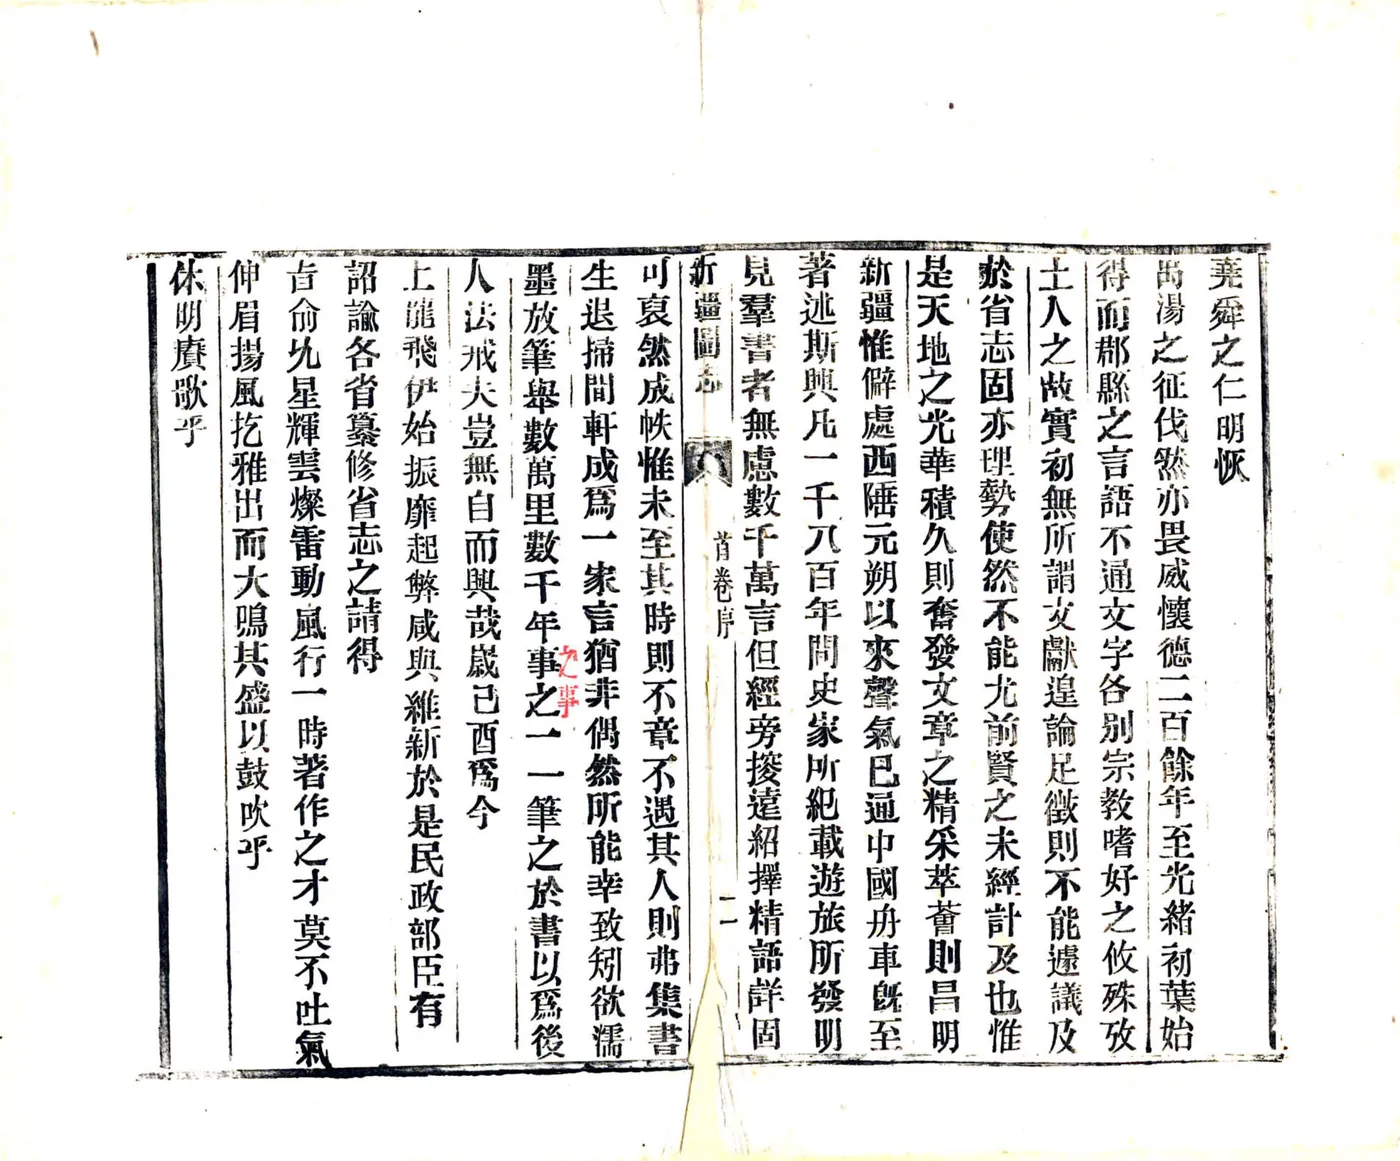 堯舜之仁明恢
禹湯之征伐然亦畏威懷德二百餘年至光緒初葉始
得而郡縣之言語不通文字各別宗教嗜好之攸殊攷
土人之故實初無所謂文獻遑論足徵則不能遽議及
於省志固亦理勢使然不能尤前賢之未經計及也惟
是天地之光華積久則奮發文章之精采萃薈則昌明
新疆惟僻處西陲元朔以來聲氣已通中國舟車旣至
著述斯興凡一千八百年間史家所紀載遊旅所發明
見羣書者無慮數千萬言但經旁搜遠紹擇精語詳固
新疆圖志
首卷序
二
可裒然成帙惟未至其時則不章不遇其人則弗集書
生退掃閒軒成爲一家言猶非偶然所能幸致矧欲濡
墨放筆舉數萬里數千年事之一一筆之於書以爲後
之事
人法戒夫豈無自而興哉歲己酉爲今
上龍飛伊始振靡起弊咸與維新於是民政部臣有
詔諭各省纂修省志之請得
旨俞允星輝雲燦雷動風行一時著作之才莫不吐氣
伸眉揚風扢雅出而大鳴其盛以鼓吹乎
休明賡歌乎